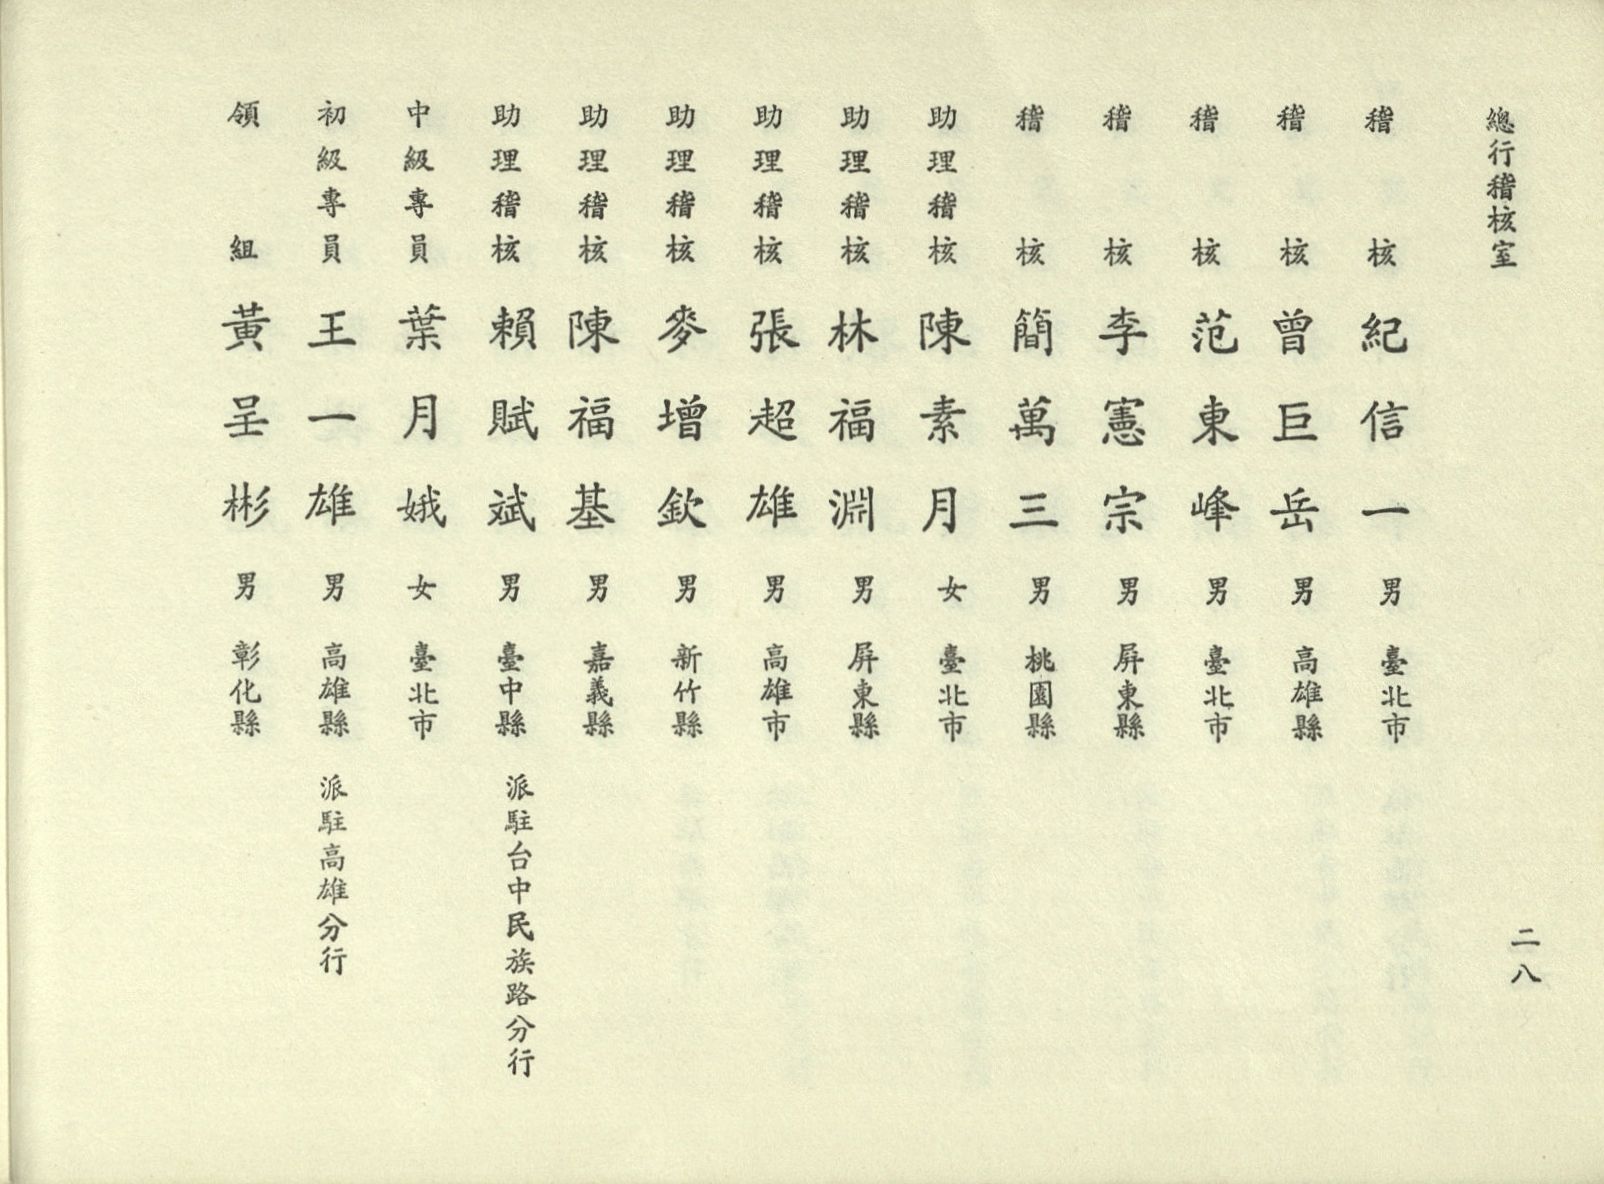 總行稽核室
稽核 紀信一 男 臺北市
稽核 曾巨岳 男 高雄縣
稽核 范東峰 男 臺北市
稽核 李憲宗 男 屏東縣
稽核 簡萬三 男 桃園縣
助理稽核 陳素月 女 臺北市
助理稽核 林福淵 男 屏東縣
助理稽核 張超雄 男 高雄市
助理稽核 麥增欽 男 新竹縣
助理稽核 陳福基 男 嘉義縣
助理稽核 賴賦斌 男 臺中縣 派駐台中民族路分行
中級專員 葉月娥 女 臺北市
初級專員 王一雄 男 高雄縣 派駐高雄分行
領組 黃呈彬 男 彰化縣
二八